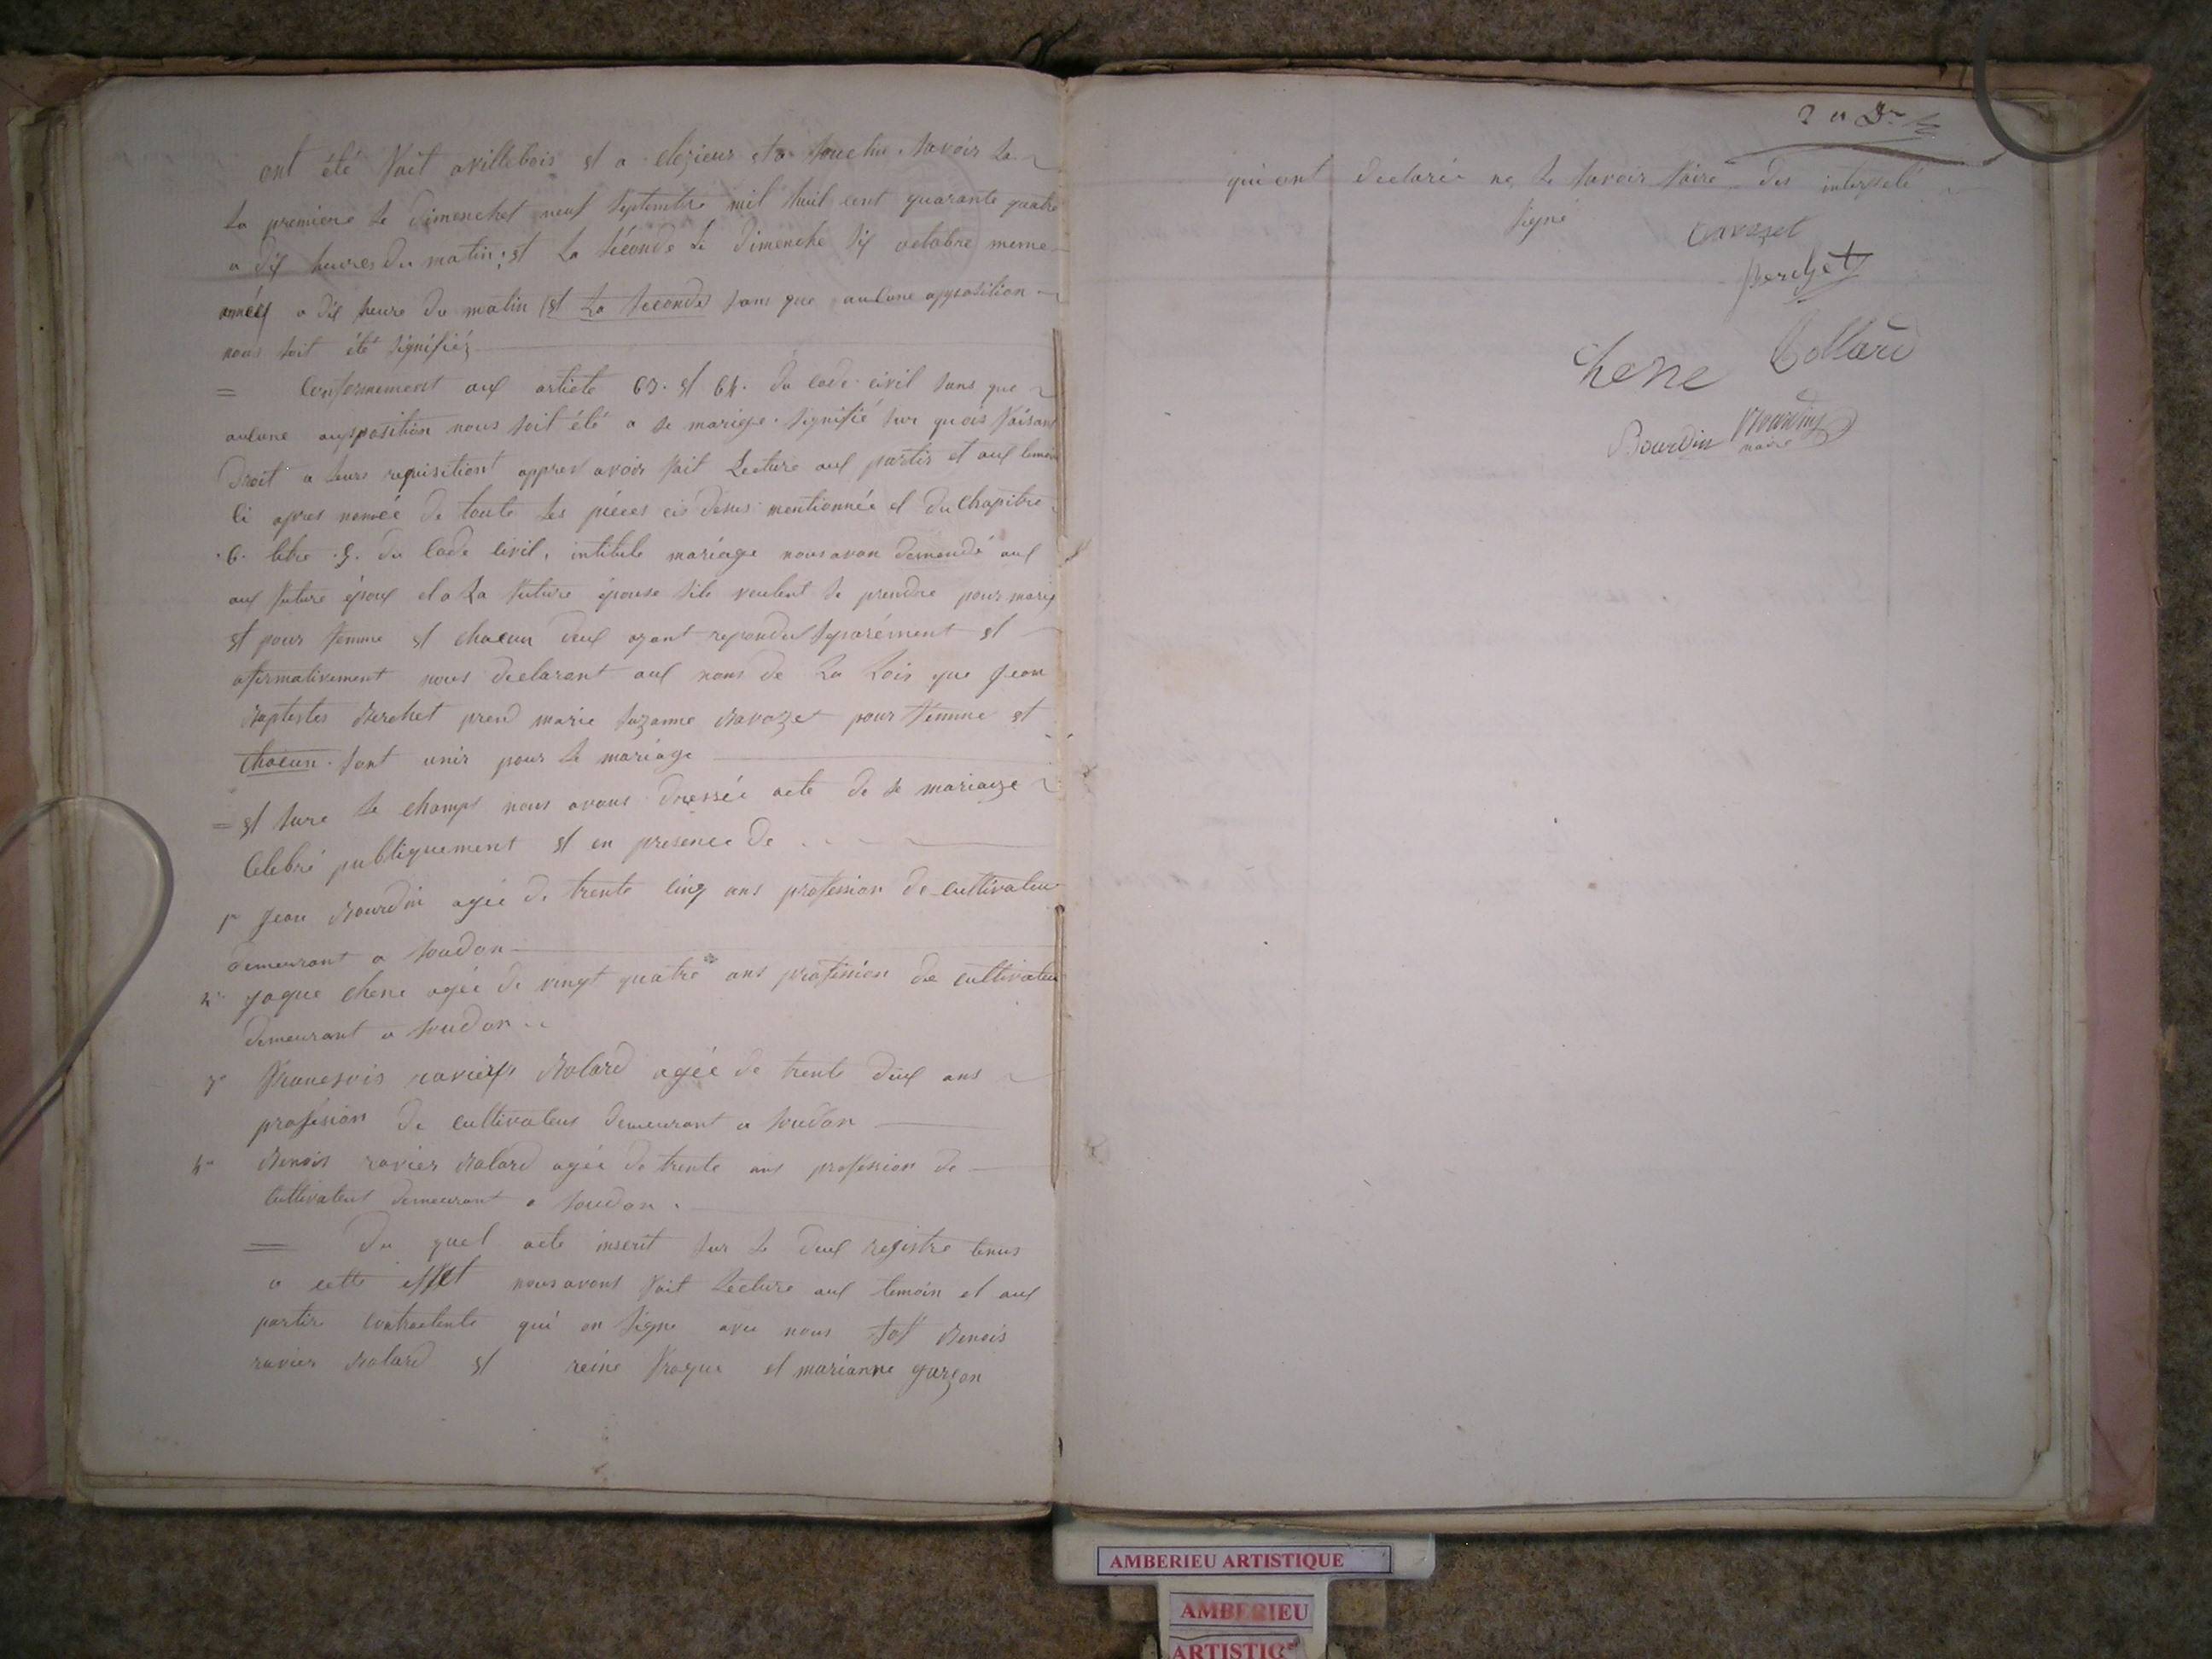 ont été fait avillebois et a elezieur et a souclin savoir la
la premiere le dimenchet neuf septembre mil huil cent quarante quatre
a dix heures du matin; et la seconde le dimenche six octobre meme
année a dix heure du matin et la seconde sans que aucune opposition
nous soit été signifiéz
= Conformement aux article 63. et 64. du code civil sans que
aucune aupposition nous soit été a se mariage signifié sur quois faisant
Droit a leurs requisitiont appres avoir fait Lecture aux partis et aux temoin
ci apres nomée de toute les piéces cis desus mentionnée et du Chapitre
.6. titre .5. du Code Civil, intitule mariage nous avon demendé aux
aux future époux et a La future épouse sils veulent se prendre pour marij
et pour femme et chacun deux ayant repondus separément et
afirmativement nous declarent aux nons de La Lois que Jean
Baptistes Berchet prend marie suzanne Bavozet pour femme et
chacun sont unir pour le mariage
= et sure le champs nous avons dressée acte de se mariage
Celebré publiquement et en presence de
1° Jean Bourdin agée de trente cinq ans profession de cultivateur
demeurant a soudon
2° Jaque chene agée de vingt quatre ans profession de cultivateur
demeurant a soudon
3° francsois ravier Bolard agée de trente deux ans
profession de cultivateur demeurant a soudon
4° Benois ravier Bolard agée de trente ans profession de
cultivateur demeurant a soudon.
= Du quel acte inscrit sur le deux registre tenus
a cette effet nous avons fait Lecture aux temoin et aux
partis contractente qui on signe avec nous sof Benois
ravier Bolard et reine et marianne garson
qui ont declarée ne le savoir faire des interpelé
signé
Bavozet
Berchet
Chene Bollard
Bourdin Bourdin
maire
AMBERIEU ARTISTIQUE
AMBERIEU
ARTISTIQ